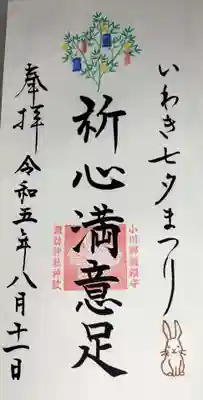 いわき七夕まつり
祈心満意足
小川郷総鎮守
諏訪神社神紋
奉拝 令和五年八月十一日